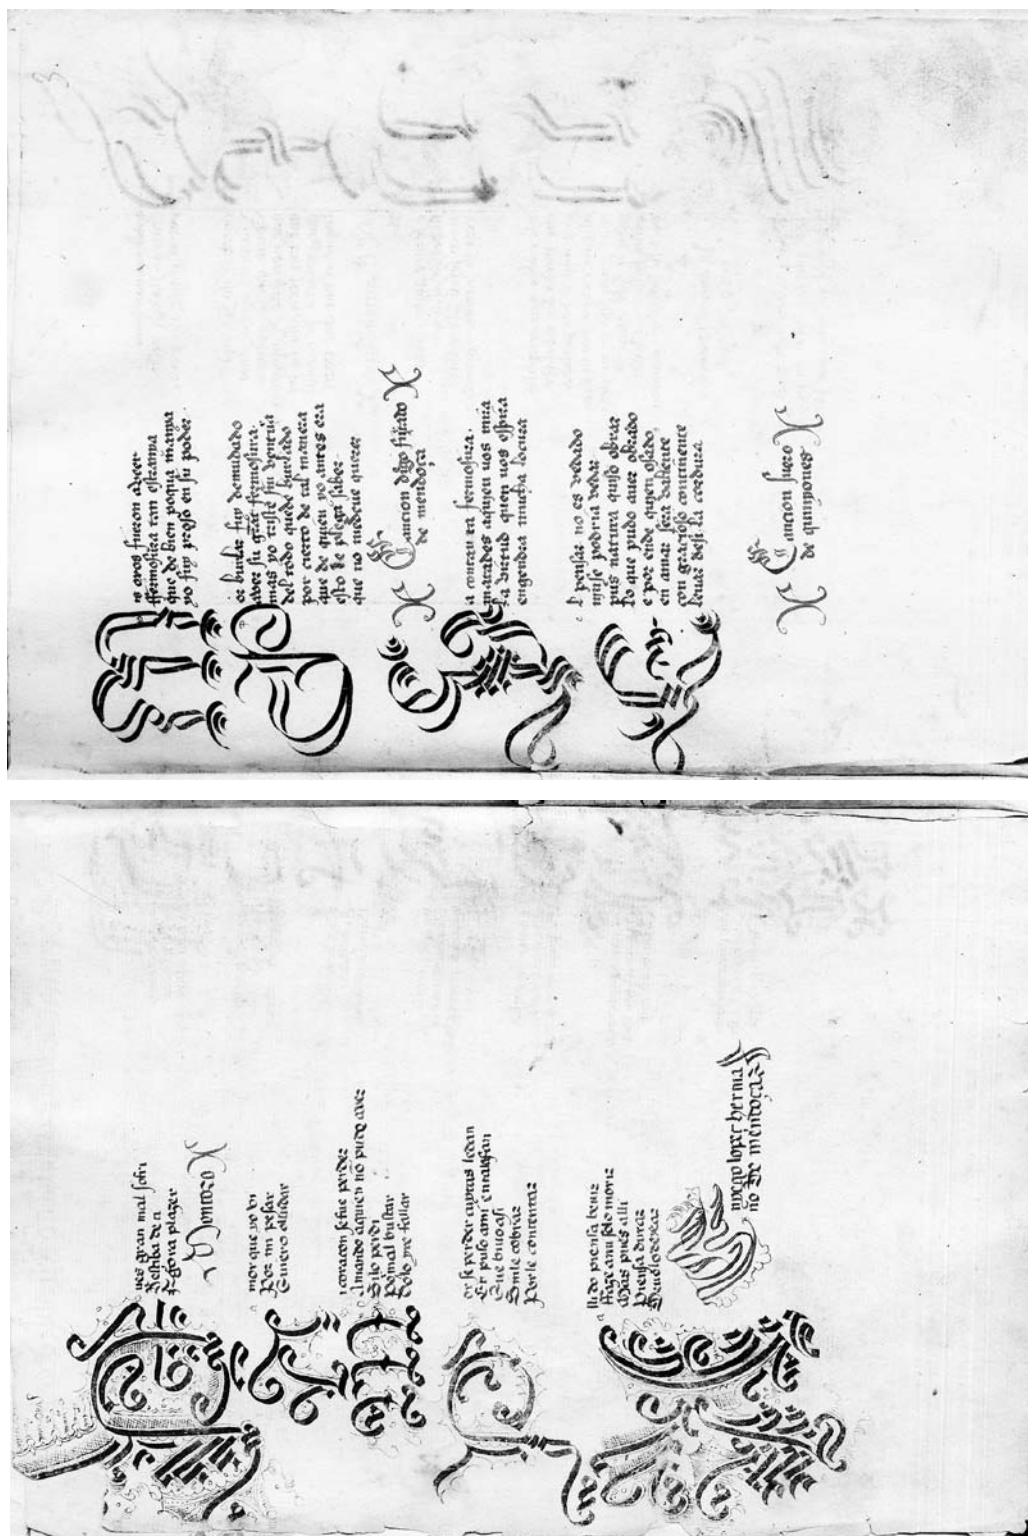 os fueron a veer
fermosura tan estranna
que de bien poqua manna
yo fuy preso en su poder
or burlar fuy demudado
a ver su gran fermosura
mas yo triste sin ventura
del todo quede burlado
por cierto de tal manera
que de quien yo antes era
esto le plega saber
que no me deue querer
Cancion diego furtado
de mendoça
a contra ta fermosura
marades aquien uos mira
la virtud quen uos espira
engendra mucha locura
l pensar no es vedado
ninse podria vedar
pues natura quiso obrar
lo que pudo auer obrado
e por ende quien osado
en amar sera valiente
con gracioso continente
leuar desi la cordura
Cancion suero
de quinyones
ues gran mal sofri
Agora plazer
Montoro
mor que yo vi
Por mi pesar
Quiero oluidar
coracon sefue perder
Amando aquien no pudo auer
Silo perdi
Por mal buscar
or se perder cuytas ledan
Et puso ami en
Que biuo asi
Simle cobrar
Por le contentar
lli do piensa beuir
Mas pues alli
Piensa durar
yñego lopez herma
no De mendoça